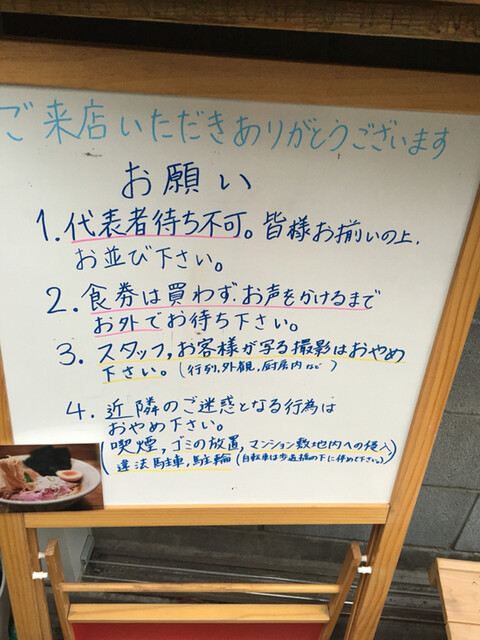 ご来店いただきありがとうございます
お願い
1. 代表者待ち不可。皆様お揃いの上、
お並び下さい。
2. 食券は買わず、お声をかけるまで
お外でお待ち下さい。
3. スタッフ、お客様が写る撮影はおやめ
下さい。(行列、外観、厨房内など)
4. 近隣のご迷惑となる行為は
おやめ下さい。
(喫煙、ゴミの放置、マンション敷地内への侵入、
違法駐車、駐輪(自転車は歩道橋の下に停めて下さい))